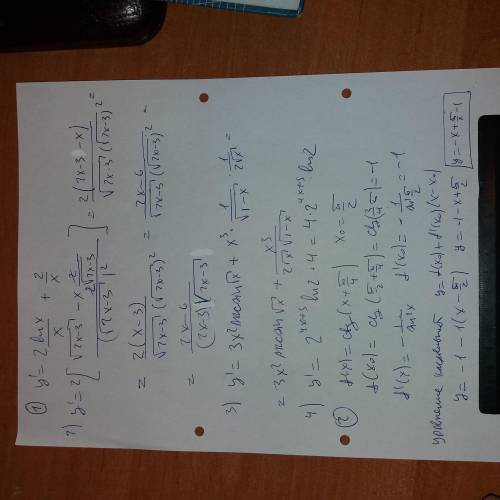 ① y' = 2lnx/x + 2/x
2) y' = 2[(√(2x-3) - x·2/(2√(2x-3)))/(√(2x-3))²] = 2(2x-3-x)/(√(2x-3)(√(2x-3))²) =
= 2(x-3)/(√(2x-3)(√(2x-3))²) = (2x-6)/(√(2x-3)(√(2x-3))²) =
= (2x-6)/((2x-3)√(2x-3))
3) y' = 3x² arcsin√x + x³ · 1/√(1-x) · 1/(2√x) =
= 3x² arcsin√x + x³/(2√x√(1-x))
4) y' = 2^(4x+3) ln2 · 4 = 4·2^(4x+3) · ln2
② f(x) = ctg(x + π/4) x₀ = π/2
f(x₀) = ctg(π/2 + π/4) = ctg(3π/4) = -1
f'(x) = -1/sin²x f'(x₀) = -1/sin²(π/2) = -1
уравнение касательной y = f(x₀) + f'(x₀)(x-x₀)
y = -1 - 1(x - π/2) y = -1 - x + π/2 y = -x + π/2 - 1